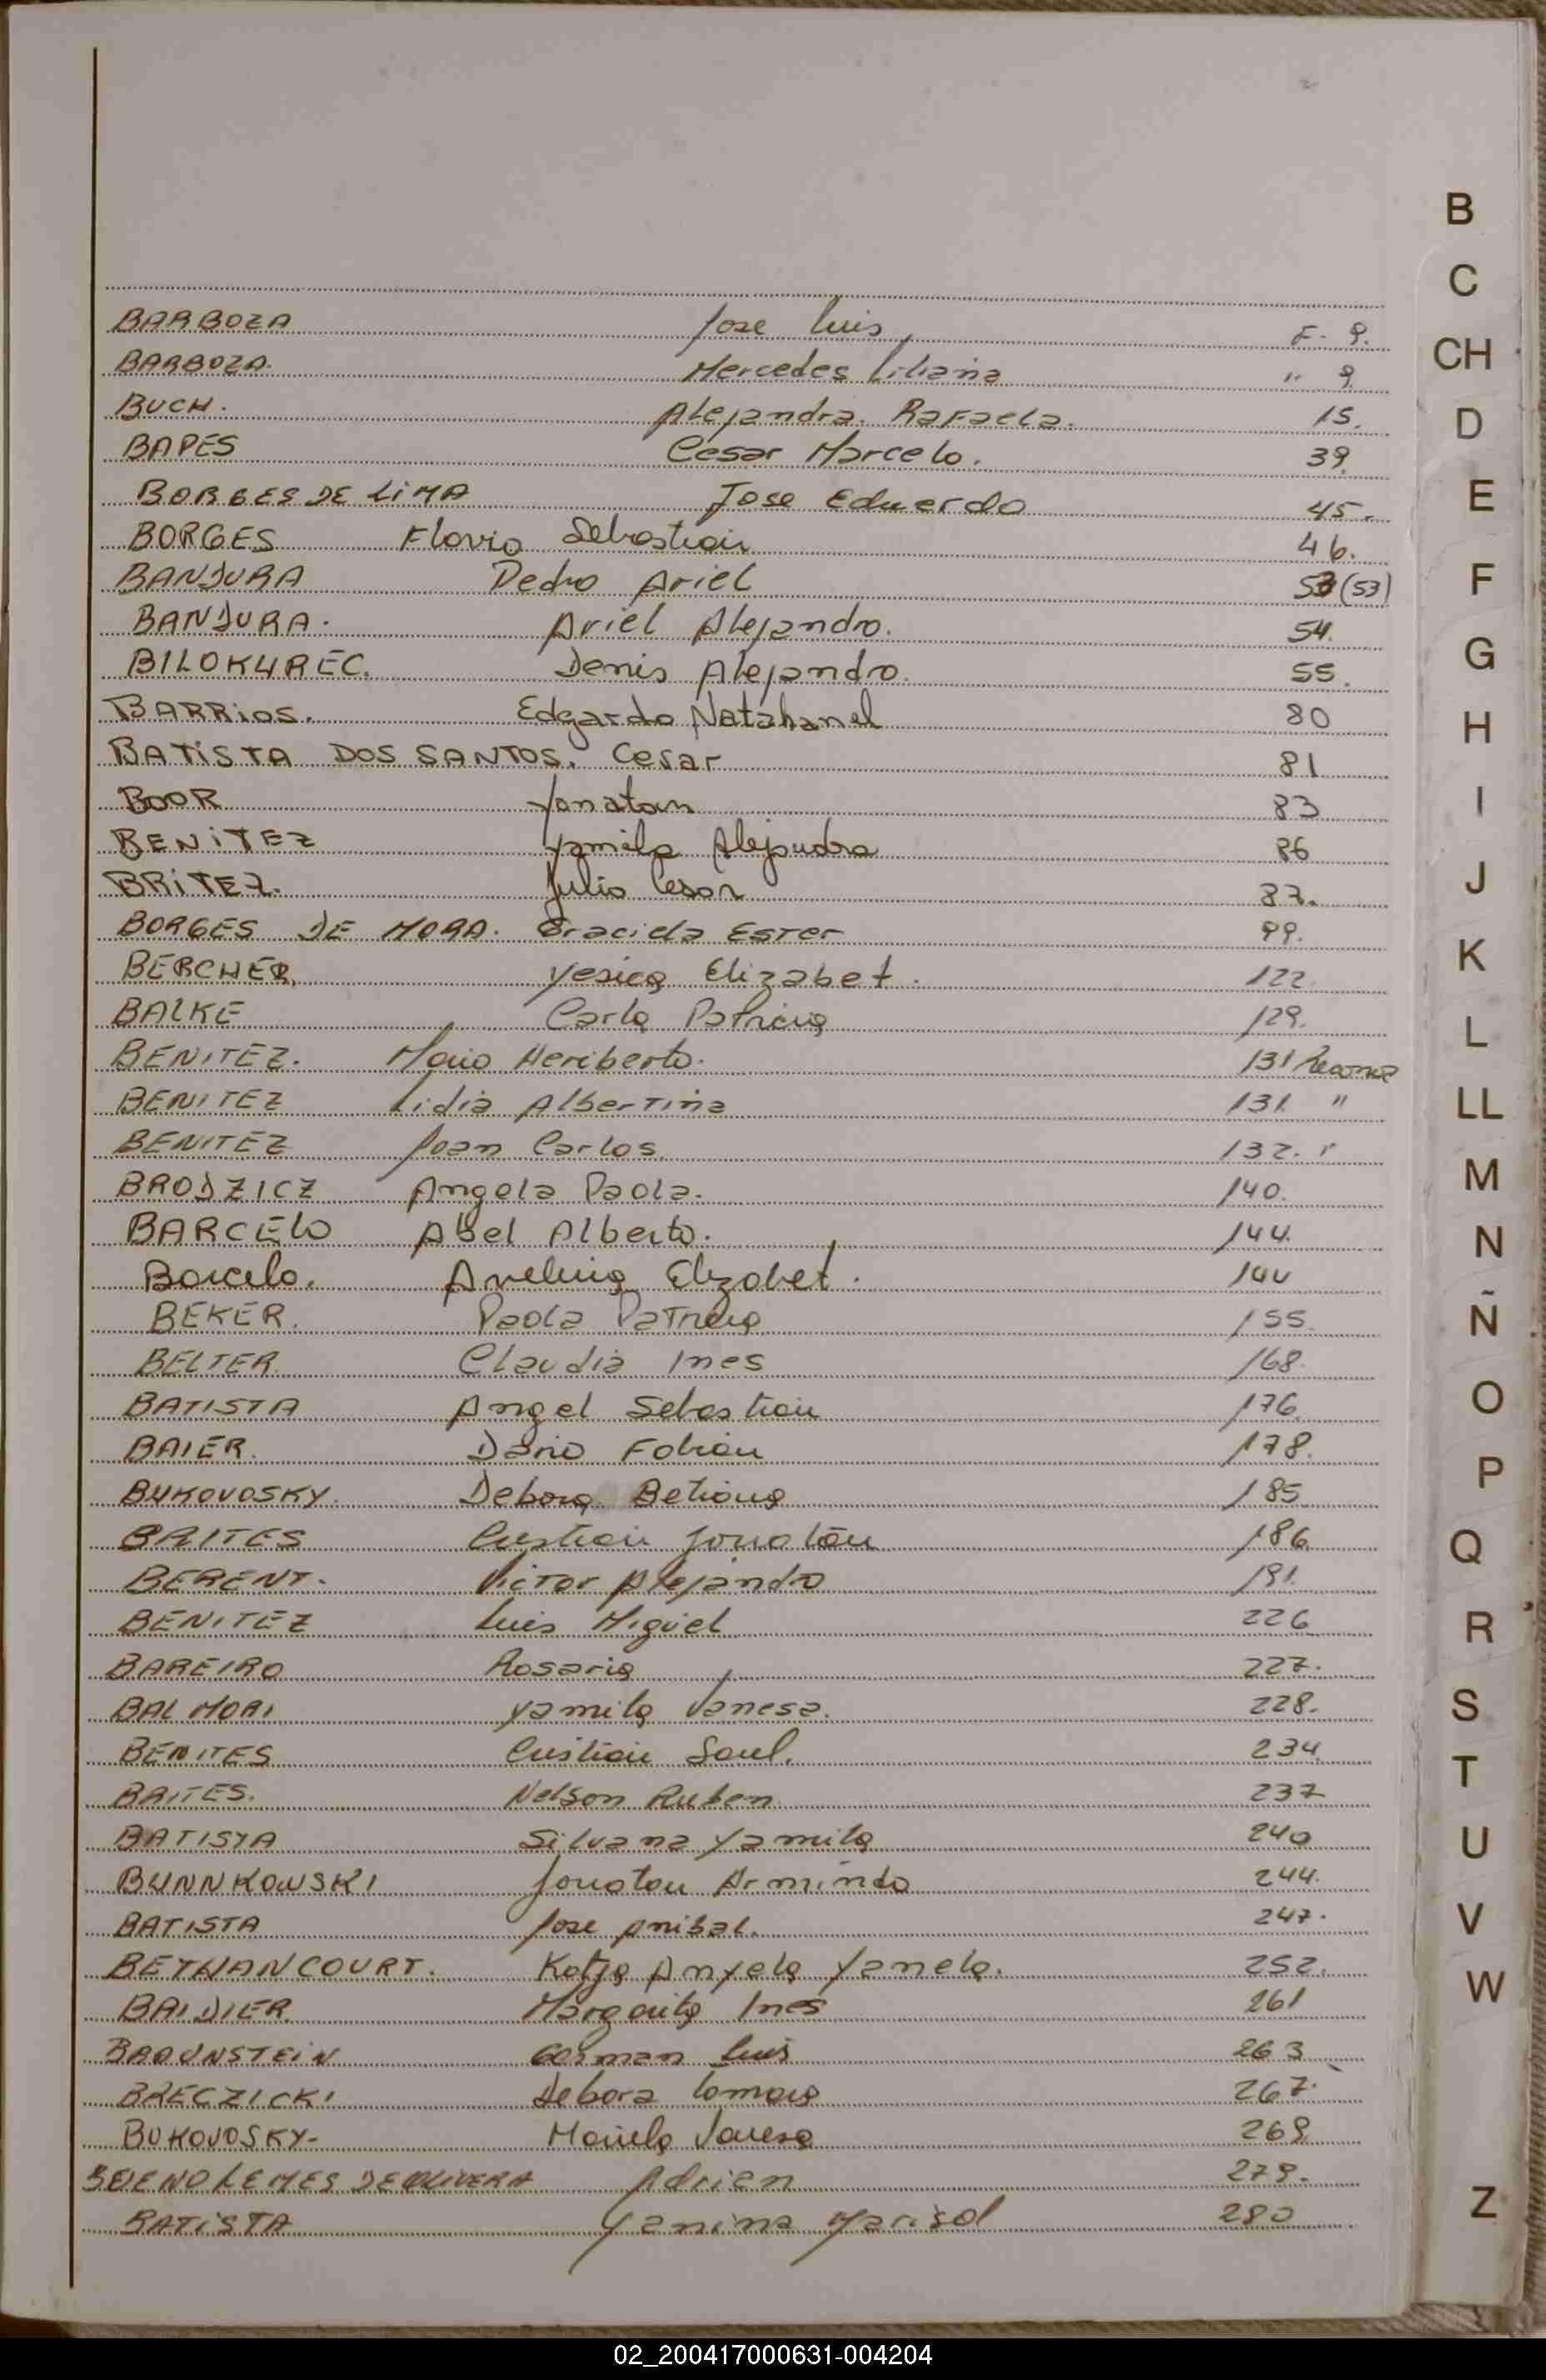 BARBOZA Jose Luis F. 9.
BARBOZA. Mercedes Liliana " 9
BUCH. Alejandra Rafaela. 15.
BAPES Cesar Marcelo. 39.
BORGES DE LIMA Jose Eduardo 45.
BORGES Flavio Sebastian 46.
BANDURA Pedro Ariel 53 (53)
BANDURA. Ariel Alejandro. 54.
BILOKUREC. Denis Alejandro. 55.
BARRIOS. Edgardo Natahanel 80
BATISTA DOS SANTOS. Cesar 81
BOOR Yonatan 83
BENITEZ Yamila Alejandra 86
BRITEZ. Julio Cesar 87.
BORGES DE MORA. Graciela Ester 99.
BERCHER. Yesica Elizabet. 122.
BALKE Carla Patricia 129.
BENITEZ. Mario Heriberto. 131
BENITEZ Lidia Albertina 131 "
BENITEZ Joan Carlos. 132. "
BRODZICZ Angela Paola. 140.
BARCELO Abel Alberto. 144.
Barcelo. Avelina Elizabet. 144
BEKER. Paola Patricia 155.
BELTER. Claudia Ines 168.
BATISTA Angel Sebastian 176.
BAIER. Dario Fabian 178.
BUKOVOSKY. Debora Betiana 185
BRITES Cristian Jonatan 186
BERENT. Victor Alejandro 191.
BENITEZ Luis Miguel 226
BAREIRO Rosaria 227.
BALMORI Yamila Vanesa. 228.
BENITES Cristian Saul. 234
BRITES. Nelson Ruben 237
BATISTA Silvana Yamila 240
BUNNKOWSKI Jonatan Armindo 244.
BATISTA Jose Anibal. 247.
BETHANCOURT. Katja Anyela Yanela. 252.
BAIDIER. Margarita Ines 261
BRAUNSTEIN German Luis 263
BRECZICKI Debora Tamara 267.
BUKOVOSKY- Mariela Vanesa 269
BUENO LEMES DE OLIVERA Adrian 279.
BATISTA Yanina Marisol 280
B
C
CH
D
E
F
G
H
I
J
K
L
LL
M
N
Ñ
O
P
Q
R
S
T
U
V
W
Z
02_200417000631-004204